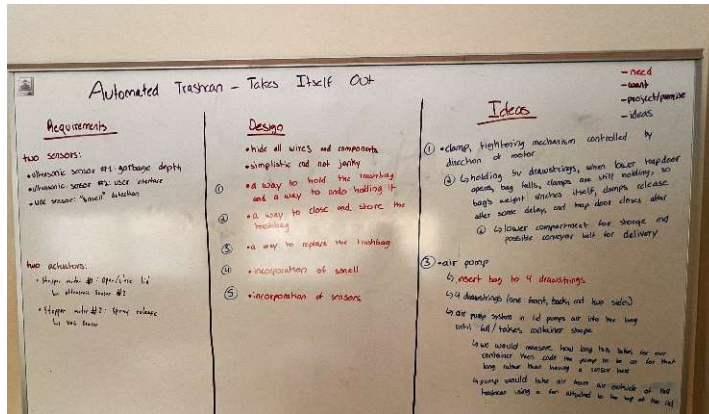 Automated Trashcan - Takes Itself Out
- need
- want
- project/promise
- ideas
Requirements
two sensors:
• ultrasonic sensor #1: garbage depth
• ultrasonic sensor #2: user interface
• VOC sensor: "smell" detection
two actuators:
• Stepper motor #1: Open/close lid
↳ ultrasonic sensor #2
• Stepper motor #2: Spray release
↳ VOC sensor
Design
• hide all wires and components
• simplistic and not janky
① • a way to hold the trashbag
and a way to undo holding it
② • a way to close and store the
trashbag
③ • a way to replace the trashbag
④ • incorporation of smell
⑤ • incorporation of sensors
Ideas
① • clamp, tightening mechanism controlled by
direction of motor
② ↳ holding by drawstrings, when lower trapdoor
opens, bag falls, clamps are still holding, so
bag's weight cinches itself, clamps release
after some delay, and trap door closes after
② ↳ lower compartment for storage and
possible conveyor belt for delivery
③ • air pump
↳ insert bag to 4 drawstrings
↳ 4 drawstrings (one front, back, and two sides)
↳ air pump system in lid pumps air into the bag
until full/takes container shape
↳ we would measure how long this takes for our
container then code the pump to be on for that
long rather than having a sensor here
↳ pump would take air from air outside of the
trashcan using a fan attached to the top of the lid